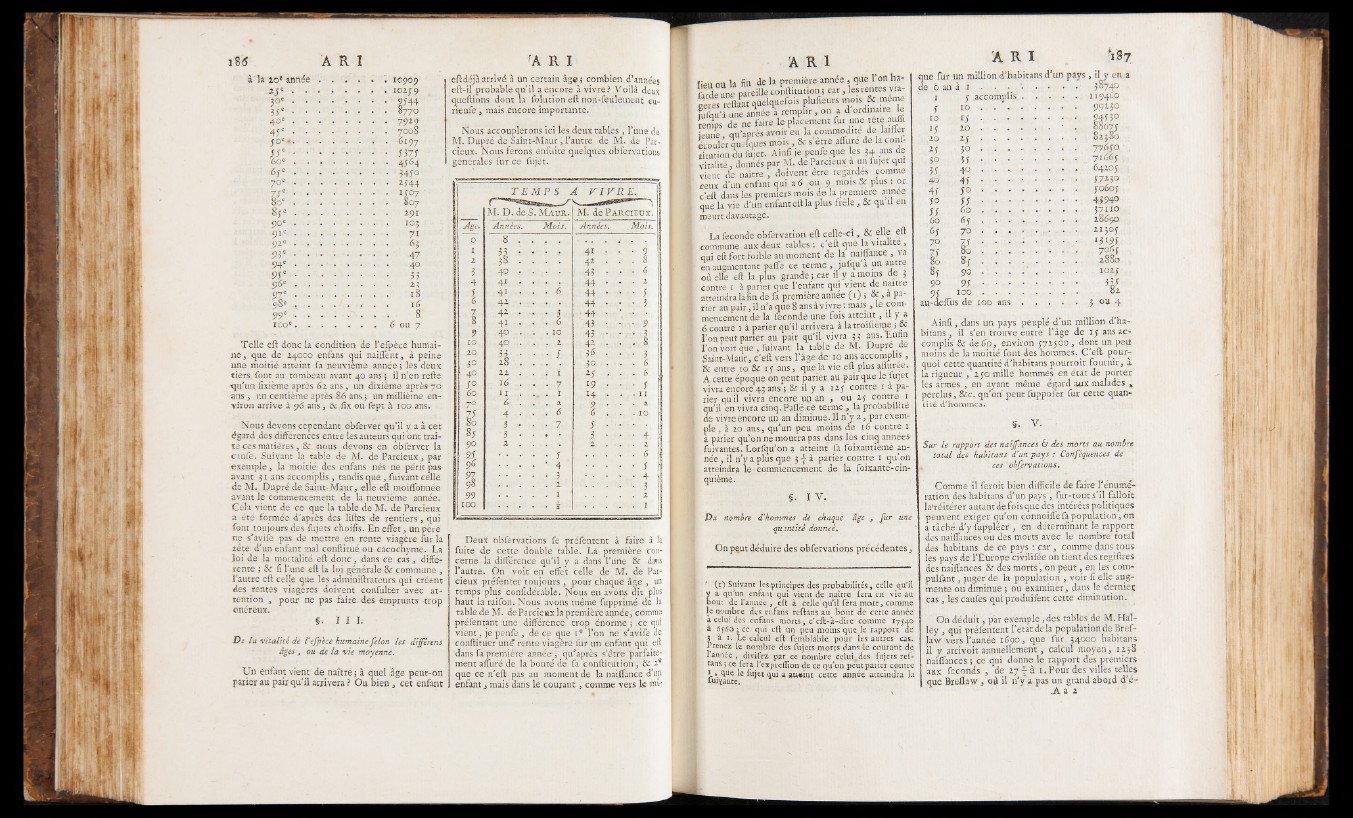 186 ARI
à la 20e année . . . . . . 10909
25e . . . . . . . . 10259
30e . . . . . . . . 9544
35e . . . . . . . . 8770
40e . . . . . . . . 7929
45e . . . . . . . . 7008
50e . . . . . . . . 6197
55e . . . . . . . . 5375
60e . . . . . . . . 4564
65e . . . . . . . . 3450
70e . . . . . . . . 2544
75e . . . . . . . . 1507
80e . . . . . . . . 807
85e . . . . . . . . 291
90e . . . . . . . . 103
91e . . . . . . . . 71
92e . . . . . . . . 63
93e . . . . . . . . 47
94e . . . . . . . . 40
95e . . . . . . . . 33
96e . . . . . . . . 23
97e . . . . . . . . 18
98e . . . . . . . . 16
99e . . . . . . . . 8
100e . . . . . . . 6 ou 7
Telle eſt donc la condition de l'eſpèce humai-
ne, que de 24000 enfans qui naiſſent, à peine
une moitié atteint ſa neuvième année; les deux
tiers ſont au tombeau avant 40 ans; il n'en reſte
qu'un ſixième après 62 ans, un dixième après 70
ans, un centième après 86 ans; un millième en-
viron arrive à 96 ans, & ſix ou ſept à 100 ans.
Nous devons cependant obſerver qu'il y a à cet
égard des différences entre les auteurs qui ont trai-
té ces matières, & nous devons en obſerver la
cauſe. Suivant la table de M. de Parcieux, par
exemple, la moitié des enfans nés ne périt pas
avant 31 ans accomplis, tandis que, ſuivant celle
de M. Dupré de Saint-Maur, elle eſt moiſſonnée
avant le commencement de la neuvième année.
Cela vient de ce que la table de M. de Parcieux
a été formée d'après des liſtes de rentiers, qui
ſont toujours des ſujets choiſis. En effet, un père
ne s'aviſe pas de mettre en rente viagère ſur la
tête d'un enfant mal conſtitué ou cacochyme. La
loi de la mortalité eſt donc, dans ce cas, diffé-
rente; & ſi l'une eſt la loi générale & commune,
l'autre eſt celle que les adminiſtrateurs qui créent
des rentes viagères doivent conſulter avec at-
tention, pour ne pas faire des emprunts trop
onéreux.
§. III.
De la vitalité de l'eſpèce humaine ſelon les différens
âges, ou de la vie moyenne.
Un enfant vient de naître; à quel âge peut-on
parier au pair qu'il arrivera? Ou bien, cet enfant
ARI
eſt déjà arrivé à un certain âge; combien d'années
eſt-il probable qu'il a encore à vivre? Voilà deux
queſtions dont la ſolution eſt non-ſeulement cu-
rieuſe, mais encore importante.
Nous accouplerons ici les deux tables, l'une de
M. Dupré de Saint-Maur, l'autre de M. de Par-
cieux. Nous ferons enſuite quelques obſervations
générales ſur ce ſujet.
TEMPS A VIVRE.
M. D. de S. MAUR. M. de PARCIEUX.
Age. Années. Mois. Années. Mois.
0 8 . . . . . . . .
1 33 . . . . 41 . . . 9
2 38 . . . . 42 . . . 8
3 40 . . . . 43 . . . 6
4 41 . . . . 44 . . . 2
5 41 . . . 6 44 . . . 5
6 42 . . . . 44 . . . 3
7 42 . . . 3 44 . . . .
8 41 . . . 6 43 . . . 9
9 40 . . . 10 43 . . . 3
10 40 . . . 2 42 . . . 8
20 33 . . . 5 36 . . . 3
30 28 . . . . 30 . . . 6
40 22 . . . 1 25 . . . 6
50 16 . . . 7 19 . . . 5
60 11 . . . 1 14 . . . 11
70 6 . . . 2 9 . . . 2
75 4 . . . 6 6 . . . 10
80 3 . . . 7 5 . . . .
85 3 . . . . 3 . . . 4
90 2 . . . . 2 . . . 2
95 . . . . 5 . . . . 6
96 . . . . 4 . . . . 5
97 . . . . . . . . . 4
98 . . . . 2 . . . . 3
99 . . . . 1 . . . . 2
100 . . . . ½ . . . . 1
Deux obſervations ſe préſentent à faire à la
ſuite de cette double table. La première con-
cerne la différence qu'il y a dans l'une & dans
l'autre. On voit en effet celle de M. de Par-
cieux préſenter toujours, pour chaque âge, un
temps plus conſidérable. Nous en avons dit plus
haut la raiſon. Nous avons même ſupprimé de la
table de M. de Parcieux la première année, comme
préſentant une différence trop énorme; ce qui
vient, je penſe, de ce que 1° l'on ne s'aviſe de
conſtituer une rente viagère ſur un enfant qui eſt
dans ſa première année, qu'après s'être parfaite-
ment aſſuré de la bonté de ſa conſtitution, & 2°
que ce n'eſt pas au moment de la naiſſance d'un
enfant, mais dans le courant, comme vers le mi-
ARI
lieu ou la fin de la première année, que l'on ha-
ſarde une pareille conſtitution; car, les rentes via-
gères reſtant quelquefois pluſieurs mois & même
juſqu'à une année à remplir, on a d'ordinaire le
temps de ne faire le placement ſur une tête auſſi
jeune, qu'après avoir eu la commodité de laiſſer
écouler quelques mois, & s'être aſſuré de la conſ-
titution du ſujet. Ainſi je penſe que les 34 ans de
vitalité, donnés par M. de Parcieux à un ſujet qui
vient de naître, doivent être regardés comme
ceux d'un enfant qui a 6 ou 9 mois & plus: or
c'eſt dans les premiers mois de la première année
que la vie d'un enfant eſt la plus frêle, & qu'il en
meurt davantage.
La ſeconde obſervation eſt celle-ci, & elle eſt
commune aux deux tables: c'eſt que la vitalité,
qui eſt fort foible au moment de la naiſſance, va
en augmentant paſſé ce terme, juſqu'à un autre
où elle eſt la plus grande; car il y a moins de 3
contre 1 à parier que l'enfant qui vient de naître
atteindra la fin de ſa première année (1); &, à pa-
rier au pair, il n'a que 8 ans à vivre: mais, le com-
mencement de la ſeconde une fois atteint, il y a
6 contre 1 à parier qu'il arrivera à la troiſième; &
l'on peut parier au pair qu'il vivra 33 ans. Enfin
l'on voit que, ſuivant la table de M. Dupré de
Saint-Maur, c'eſt vers l'âge de 10 ans accomplis,
& entre 10 & 15 ans, que la vie eſt plus aſſurée.
A cette époque on peut parier au pair que le ſujet
vivra encore 43 ans; & il y a 125 contre 1 à pa-
rier qu'il vivra encore un an, ou 25 contre 1
qu'il en vivra cinq. Paſſé ce terme, la probabilité
de vivre encore un an diminue. Il n'y a, par exem-
ple, à 20 ans, qu'un peu moins de 16 contre 1
à parier qu'on ne mourra pas dans les cinq années
ſuivantes. Lorſqu'on a atteint ſa ſoixantième an-
née, il n'y a plus que 3 ½ à parier contre 1 qu'on
atteindra le commencement de la ſoixante-cin-
quième.
§. IV.
Du nombre d'hommes de chaque âge, ſur une
quantité donnée.
On peut déduire des obſervations précédentes,
(1) Suivant les principes des probabilités, celle qu'il
y a qu'un enfant qui vient de naître ſera en vie au
bout de l'année, eſt à celle qu'il ſera mort, comme
le nombre des enfans reſtans au bout de cette année
à celui des enfans morts, c'eſt-à-dire comme 17540
à 6560; ce qui eſt un peu moins que le rapport de
3 à 1. Le calcul eſt ſemblable pour les autres cas.
Prenez le nombre des ſujets morts dans le courant de
l'année, diviſez par ce nombre celui des ſujets reſ-
tans; ce ſera l'expreſſion de ce qu'on peut parier contre
1, que le ſujet qui a atteint cette année atteindra la
ſuivante.
ARI 187
que ſur un million d'habitans d'un pays, il y en a
de 0 an à 1 . . . . . . . 38740
1 5 accomplis . . . . 119460
5 10 . . . . . . . 99230
10 15 . . . . . . . 94530
15 20 . . . . . . . 88675
20 25 . . . . . . . 82380
25 30 . . . . . . . 77650
30 35 . . . . . . . 71665
35 40 . . . . . . . 64205
40 45 . . . . . . . 57230
45 50 . . . . . . . 50605
50 55 . . . . . . . 43940
55 60 . . . . . . . 37110
60 65 . . . . . . . 28690
65 70 . . . . . . . 21305
70 75 . . . . . . . 13195
75 80 . . . . . . . 7065
80 85 . . . . . . . 2880
85 90 . . . . . . . 1025
90 95 . . . . . . . 335
95 100 . . . . . . . 82
au-deſſus de 100 ans . . . . . 3 ou 4
Ainſi, dans un pays peuplé d'un million d'ha-
bitans, il s'en trouve entre l'âge de 15 ans ac-
complis & de 60, environ 572500, dont un peu
moins de la moitié ſont des hommes. C'eſt pour-
quoi cette quantité d'habitans pourroit fournir, à
la rigueur, 250 mille hommes en état de porter
les armes, en ayant même égard aux malades,
perclus, &c. qu'on peut ſuppoſer ſur cette quan-
tité d'hommes.
§. V.
Sur le rapport des naiſſances & des morts au nombre
total des habitans d'un pays: Conſéquences de
ces obſervations.
Comme il ſeroit bien difficile de faire l'énumé-
ration des habitans d'un pays, ſur-tout s'il falloit
la réitérer autant de fois que des intérêts politiques
peuvent exiger qu'on connoiſſe ſa population, on
a tâché d'y ſuppléer, en déterminant le rapport
des naiſſances ou des morts avec le nombre total
des habitans de ce pays: car, comme dans tous
les pays de l'Europe civiliſée on tient des regiſtres
des naiſſances & des morts, on peut, en les com-
pulſant, juger de la population, voir ſi elle aug-
mente ou diminue; ou examiner, dans le dernier
cas, les cauſes qui produiſent cette diminution.
On déduit, par exemple, des tables de M. Hal-
ley, qui préſentent l'état de la population de Breſ-
law vers l'année 1690, que ſur 34000 habitans
il y arrivoit annuellement, calcul moyen, 1238
naiſſances; ce qui donne le rapport des premiers
aux ſeconds, de 27 ½ à 1. Pour des villes telles
que Breſlaw, où il n'y a pas un grand abord d'é-
A a 2